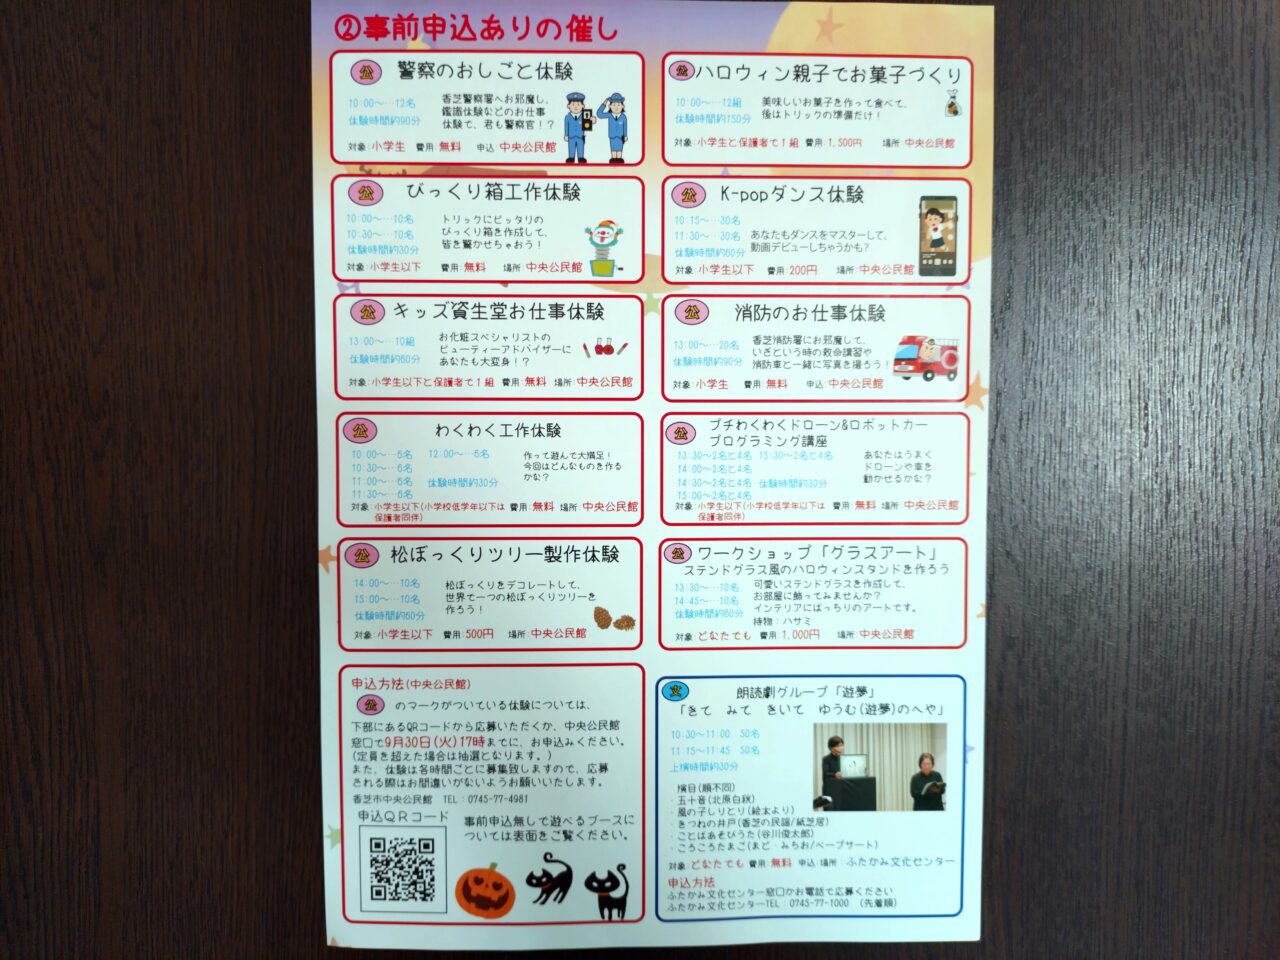 ②事前申込ありの催し
公 警察のおしごと体験
10:00～…12名
体験時間約90分
香芝警察署へお邪魔し、
鑑識体験などのお仕事
体験で、君も警察官！？
対象:小学生 費用:無料 申込:中央公民館
公 ハロウィン親子でお菓子づくり
10:00～…12組
体験時間約150分
美味しいお菓子を作って食べて、
後はトリックの準備だけ！
対象:小学生と保護者で1組 費用:1,500円 場所:中央公民館
公 びっくり箱工作体験
10:00～…10名
10:30～…10名
体験時間約30分
トリックにピッタリの
びっくり箱を作成して、
皆を驚かせちゃおう！
対象:小学生以下 費用:無料 場所:中央公民館
公 K-popダンス体験
10:15～…30名
11:30～…30名
体験時間約60分
あなたもダンスをマスターして、
動画デビューしちゃうかも？
対象:小学生以下 費用:200円 場所:中央公民館
公 キッズ資生堂お仕事体験
13:00～…10組
体験時間約60分
お化粧スペシャリストの
ビューティーアドバイザーに
あなたも大変身！？
対象:小学生以下と保護者で1組 費用:無料 場所:中央公民館
公 消防のお仕事体験
13:00～…20名
体験時間約90分
香芝消防署にお邪魔して、
いざという時の救命講習や
消防車と一緒に写真を撮ろう！
対象:小学生 費用:無料 申込:中央公民館
公 わくわく工作体験
10:00～…6名 12:00～…6名
10:30～…6名
11:00～…6名 体験時間約30分
11:30～…6名
作って遊んで大満足！
今回はどんなものを作る
かな？
対象:小学生以下(小学校低学年以下は 費用:無料 場所:中央公民館
保護者同伴)
公 プチわくわくドローン&ロボットカー
プログラミング講座
13:30～2名と4名 15:30～2名と4名
14:00～2名と4名
14:30～2名と4名 体験時間約30分
15:00～2名と4名
あなたはうまく
ドローンや車を
動かせるかな？
対象:小学生以下(小学校低学年以下は 費用:無料 場所:中央公民館
保護者同伴)
公 松ぼっくりツリー製作体験
14:00～…10名
15:00～…10名
体験時間約60分
松ぼっくりをデコレートして、
世界で一つの松ぼっくりツリーを
作ろう！
対象:小学生以下 費用:500円 場所:中央公民館
公 ワークショップ「グラスアート」
ステンドグラス風のハロウィンスタンドを作ろう
13:30～…10名
14:45～…10名
体験時間約60分
可愛いステンドグラスを作成して、
お部屋に飾ってみませんか？
インテリアにばっちりのアートです。
持物：ハサミ
対象:どなたでも 費用:1,000円 場所:中央公民館
申込方法(中央公民館)
公 のマークがついている体験については、
下部にあるQRコードから応募いただくか、中央公民館
窓口で9月30日(火)17時までに、お申込みください。
(定員を超えた場合は抽選となります。)
また、体験は各時間ごとに募集致しますので、応募
される際はお間違いがないようお願いいたします。
香芝市中央公民館 TEL：0745-77-4981
申込QRコード
事前申込無しで遊べるブースに
ついては表面をご覧ください。
文 朗読劇グループ「遊夢」
「きて みて きいて ゆうむ(遊夢)のへや」
10:30～11:00 50名
11:15～11:45 50名
上演時間約30分
演目(順不同)
・五十音(北原白秋)
・風の子しりとり(絵本より)
・きつねの井戸(香芝の民謡/紙芝居)
・ことばあそびうた(谷川俊太郎)
・ころころたまご(まど・みちお/ペープサート)
対象:どなたでも 費用:無料 申込・場所:ふたかみ文化センター
申込方法
ふたかみ文化センター窓口かお電話で応募ください
ふたかみ文化センターTEL：0745-77-1000 (先着順)